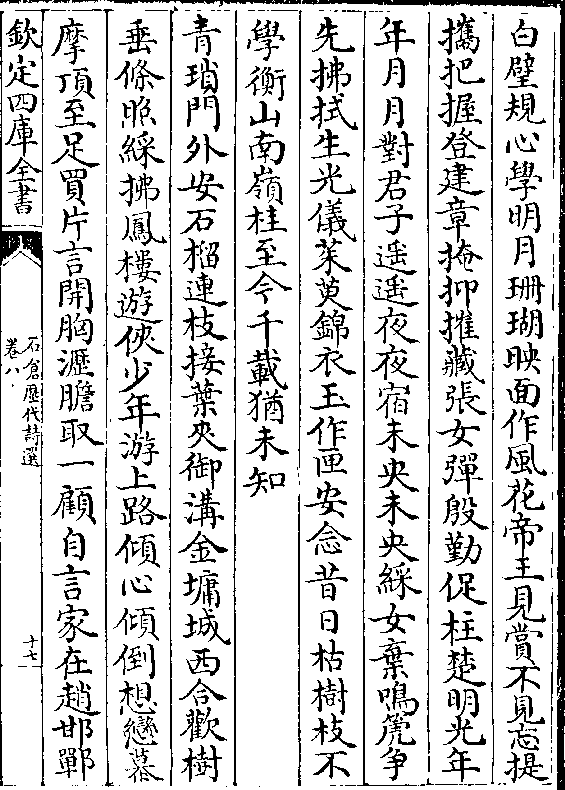 白璧規心學明月珊瑚映面作風花帝王見賞不見忘提
攜把握登建章掩抑摧藏張女彈殷勤促柱楚明光年
年月月對君子遥遥夜夜宿未央未央綵女棄鳴篪争
先拂拭生光儀茱萸錦衣玉作匣安念昔日枯樹枝不
學衡山南嶺桂至今千載猶未知
青瑣門外安石榴連枝接葉夾御溝金墉城西合歡樹
垂條照綵拂鳳樓遊俠少年游上路傾心傾倒想戀慕
摩頂至足買片言開胸瀝膽取一顧自言家在趙邯鄲
欽定四庫全書
石倉歴代詩選
卷八
十七